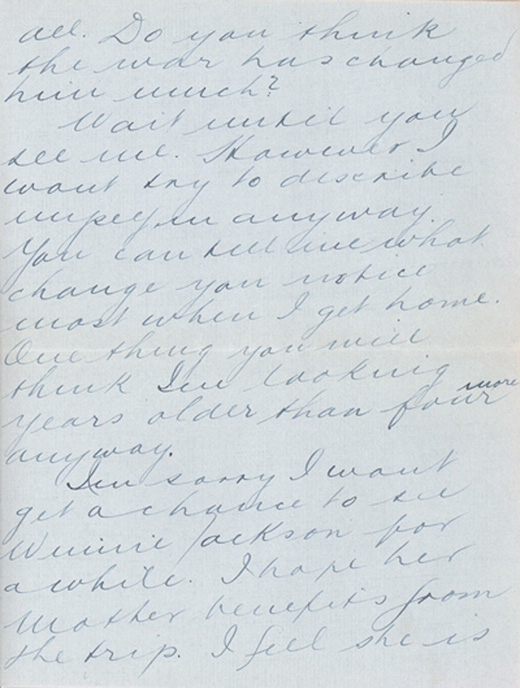 all. Do you think
the war has changed
him much?
Wait until you
see me. However I
wont try to describe
myself in anyway.
You can tell me what
change you notice
most when I get home.
One thing you will
think Im looking
years older than four more
anyway.
Im sorry I wont
get a chance to see
Winnie Jackson for
awhile. I hope her
Mother benefits from
the trip. I feel she is